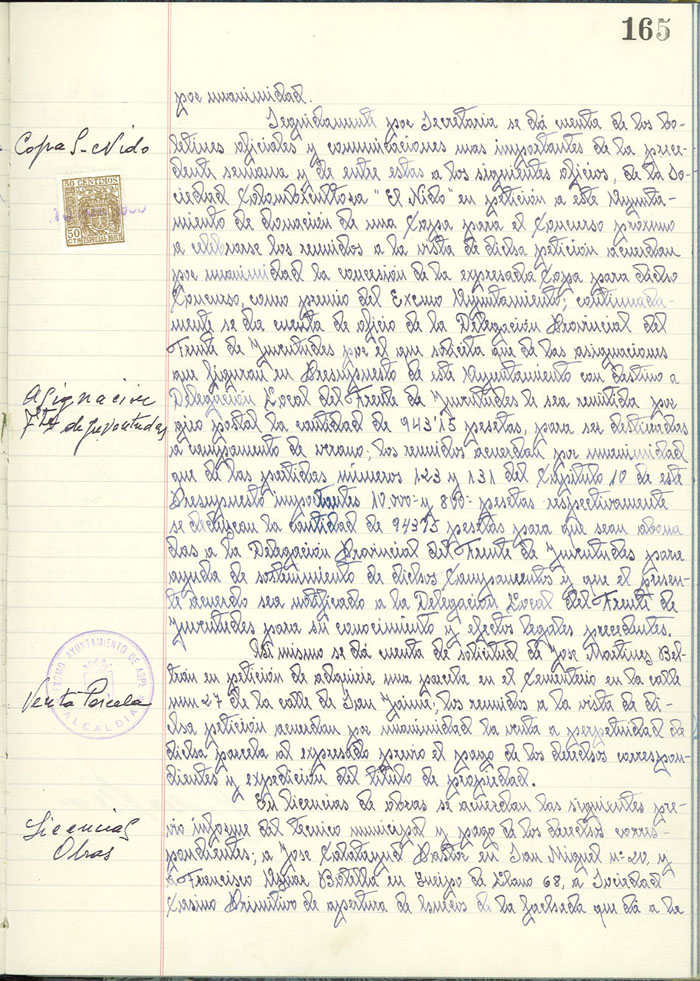 165
por unanimidad.
Seguidamente por Secretaria se dá cuenta de los bo-
Copa S. Nido
letines oficiales y comunicaciones mas importantes de la prece-
dente semana y de entre estas a los siguientes oficios, de la So-
ciedad Colombicultora "El Nido" en petición a este Ayunta-
50 CENTIMOS
miento de donación de una Copa para el Concurso próximo
50
CTS
ESPECIAL MOVIL
a celebrarse los reunidos a la vista de dicha petición acuerdan
por unanimidad la concesión de la expresada Copa para dicho
Concurso, como premio del Excmo Ayuntamiento; continuada-
mente se dá cuenta de oficio de la Delegación Provincial del
Frente de Juventudes por el que solicita que de las asignaciones
que figuran en Presupuesto de este Ayuntamiento con destino a
Asignacion
Delegación Local del Frente de Juventudes le sea remitida por
Fte de Juventudes
giro postal la cantidad de 943'75 pesetas, para ser destinadas
a campamento de verano; los reunidos acuerdan por unanimidad
que de las partidas números 123 y 131 del Capitulo 10 de este
Presupuesto importantes 10.000- y 800- pesetas respectivamente
se deduzcan la cantidad de 943'75 pesetas para que sean abona
das a la Delegación Provincial del Frente de Juventudes para
ayuda de sostenimiento de dichos Campamentos y que el presen-
te acuerdo sea notificado a la Delegación Local del Frente de
Juventudes para su conocimiento y efectos legales procedentes.
AYUNTAMIENTO DE ASPE
ALCALDIA
Asi mismo se dá cuenta de solicitud de Jose Martinez Bel-
trán en petición de adquirir una parcela en el Cementerio en la calle
Venta Parcela
num 27 de la calle de San Jaime; los reunidos a la vista de di-
cha petición acuerdan por unanimidad la venta a perpetuidad de
dicha parcela al expresado previo el pago de los derechos correspon-
dientes y expedición del titulo de propiedad.
En licencias de obras se acuerdan las siguientes pre-
Licencias
Obras
vio informe del tecnico municipal y pago de los derechos corres-
pondientes; a Jose Calatayud Pastor en San Miguel nº 20, y
a Francisco Aznar Botella en Queipo de Llano 68, a Sociedad
Casino Primitivo de apertura de huecos de la fachada que dá a la